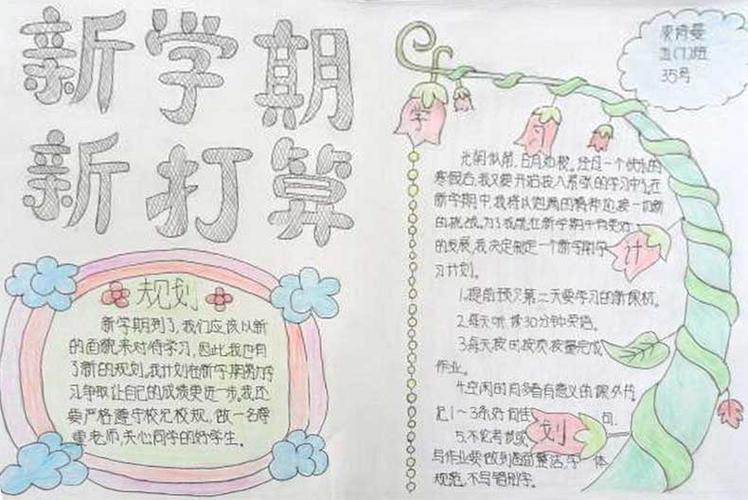 新学期
新打算
规划
新学期到了,我们应该以新
的面貌来对待学习,因此,我也有
了新的规划,我计划在新学期努力学
习争取让自己的成绩更进一步,我还
要严格遵守校纪校规,做一名尊
重老师,关心同学的好学生。
五(7)班
35号
学
习
计
划
光阴似箭,日月如梭,经过一个快乐的
寒假后,我又要开始投入紧张的学习中,在
新学期中,我将以饱满的精神迎接一切新
的挑战,为了我能在新学期中有更好
的发展,我决定制定一个新学期学
习计划。
1.提前预习第二天要学习的新课材。
2.每天听读30分钟英语。
3.每天按时按质按量完成
作业。
4.空闲时间多看有意义的课外书,
记1~3条好词佳句。
5.不论考试或
写作业要做到卷面整洁,字体
规范,不写错别字。